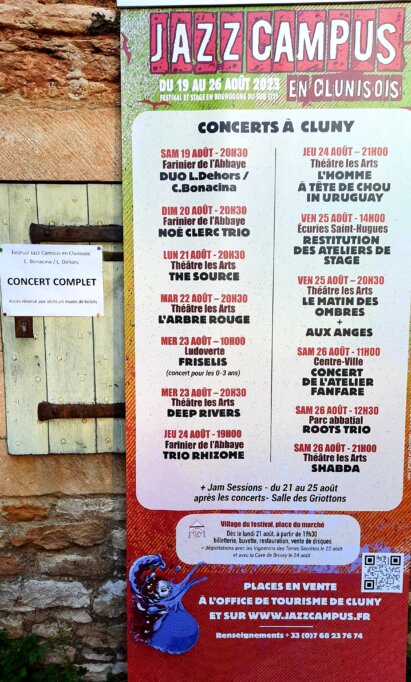 JAZZ CAMPUS
EN CLUNISOIS
DU 19 AU 26 AOÛT 2023
FESTIVAL ET STAGE EN BOURGOGNE DU SUD (71)
CONCERTS À CLUNY
SAM 19 AOÛT - 20H30
Farinier de l'Abbaye
DUO L.DEHORS /
C.BONACINA
DIM 20 AOÛT - 20H30
Farinier de l'Abbaye
NOÉ CLERC TRIO
LUN 21 AOÛT - 20H30
Théâtre les Arts
THE SOURCE
MAR 22 AOÛT - 20H30
Théâtre les Arts
L'ARBRE ROUGE
MER 23 AOÛT - 10H00
Ludoverte
FRISELIS
(concert pour les 0-3 ans)
MER 23 AOÛT - 20H30
Théâtre les Arts
DEEP RIVERS
JEU 24 AOÛT - 19H00
Farinier de l'Abbaye
TRIO RHIZOME
JEU 24 AOÛT - 21H00
Théâtre les Arts
L'HOMME
À TÊTE DE CHOU
IN URUGUAY
VEN 25 AOÛT - 14H00
Écuries Saint-Hugues
RESTITUTION
DES ATELIERS DE
STAGE
VEN 25 AOÛT - 20H30
Théâtre les Arts
LE MATIN DES
OMBRES
+
AUX ANGES
SAM 26 AOÛT - 11H00
Centre-Ville
CONCERT
DE L'ATELIER
FANFARE
SAM 26 AOÛT - 12H30
Parc abbatial
ROOTS TRIO
SAM 26 AOÛT - 21H00
Théâtre les Arts
SHABDA
+ Jam Sessions - du 21 au 25 août
après les concerts- Salle des Griottons
Village du festival, place du marché
Dès le lundi 21 août, à partir de 19h30
billetterie, buvette, restauration, vente de disques.
+ dégustations avec les Vignerons des Terres Secrètes le 22 août
et avec la Cave de Bissey le 24 août
PLACES EN VENTE
À L'OFFICE DE TOURISME DE CLUNY
ET SUR WWW.JAZZCAMPUS.FR
Renseignements + 33 (0)7 68 23 76 74
Festival Jazz Campus en Clunisois
C. Bonacina / L. Dehors
CONCERT COMPLET
Accès réservé aux visiteurs munis de billets